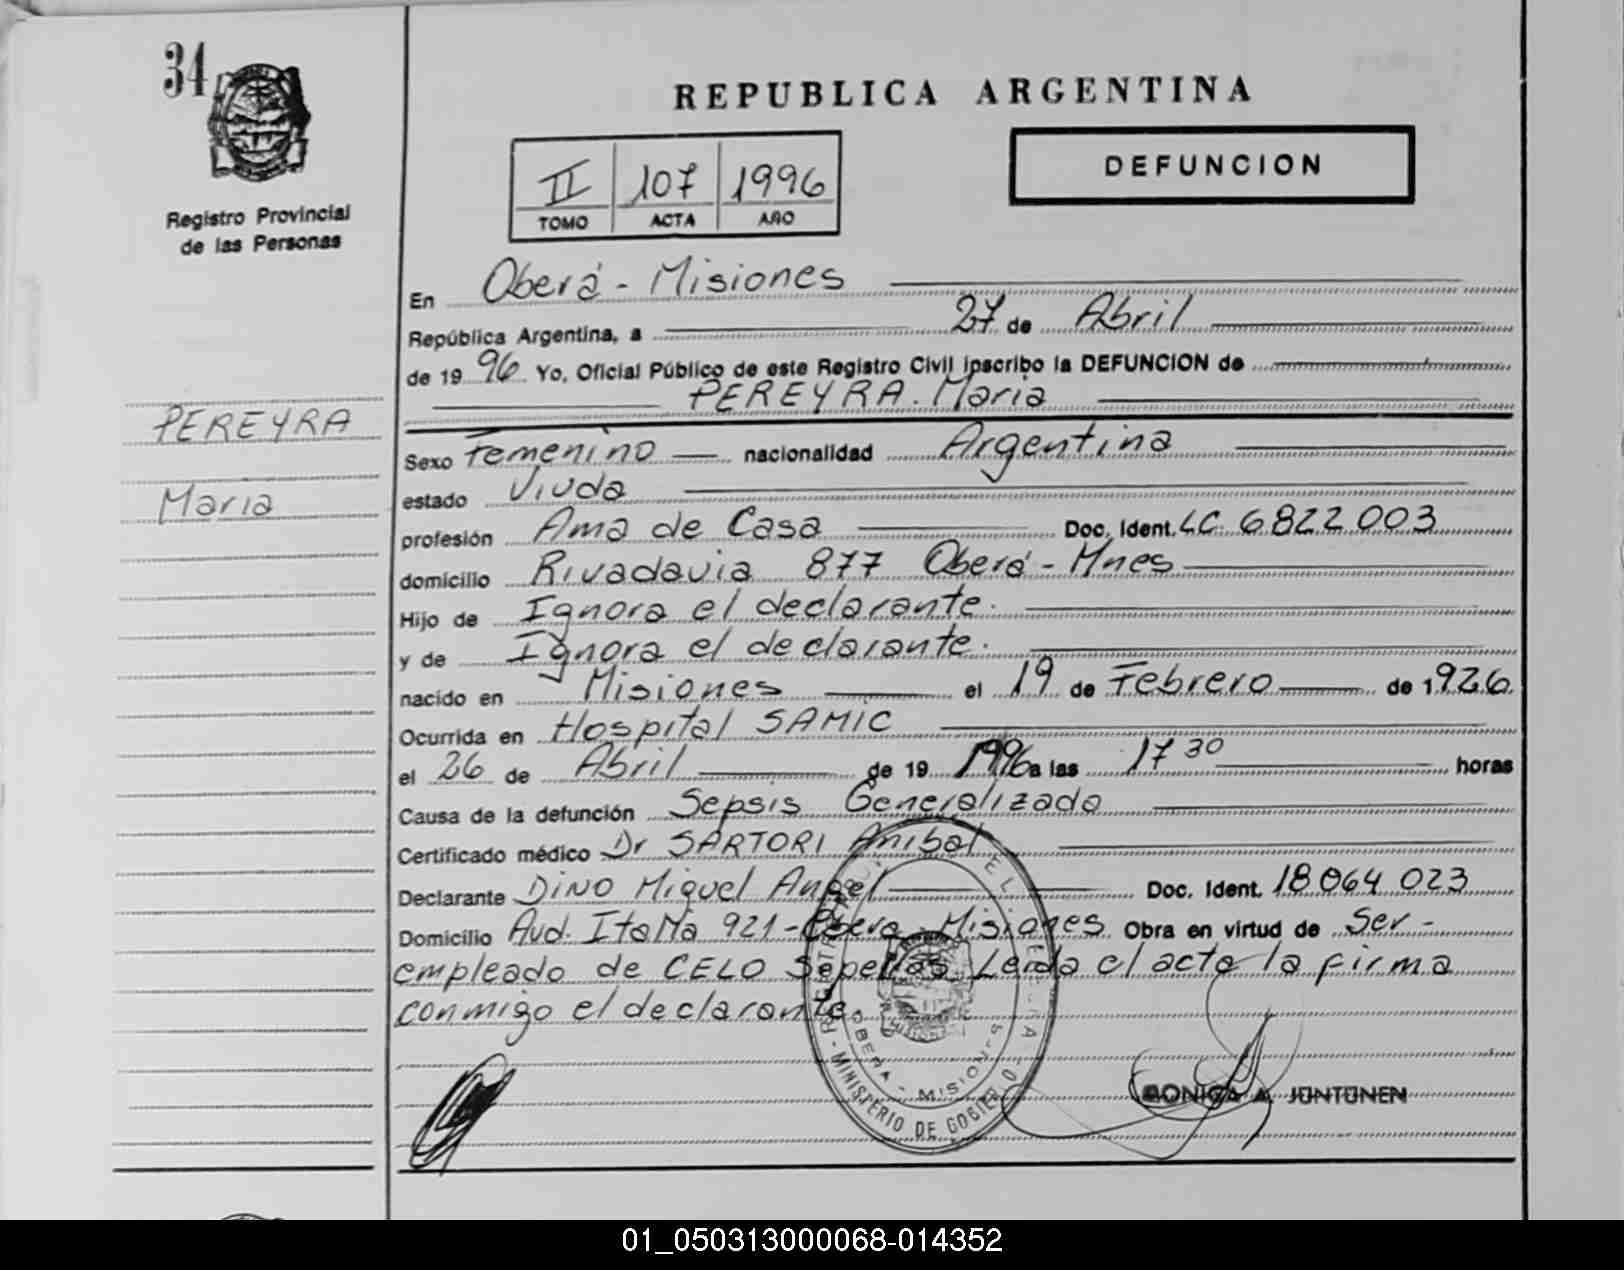 34
Registro Provincial
de las Personas
REPUBLICA ARGENTINA
II 107 1996
TOMO ACTA AÑO
DEFUNCION
PEREYRA
Maria
En Oberá - Misiones
República Argentina, a 27 de Abril
de 19 96 Yo, Oficial Público de este Registro Civil inscribo la DEFUNCION de
PEREYRA. Maria
Sexo Femenino nacionalidad Argentina
estado Viuda
profesión Ama de Casa Doc. Ident. LC. 6.822.003
domicilio Rivadavia 877 Oberá - Mnes
Hijo de Ignora el declarante.
y de Ignora el declarante.
nacido en Misiones el 19 de Febrero de 1.926.
Ocurrida en Hospital SAMIC
el 26 de Abril de 19 1996 a las 17 30 horas
Causa de la defunción Sepsis Generalizada
Certificado médico Dr SARTORI Anibal
Declarante DINO Miguel Angel Doc. Ident. 18.064.023
Domicilio Avd. Italia 921 - Obera - Misiones Obra en virtud de Ser -
empleado de CELO Sepelios Leida el acta la firma
conmigo el declarante.
OBERA - MISIONES
MINISTERIO DE GOBIERNO
A. JUNTUNEN
01_050313000068-014352